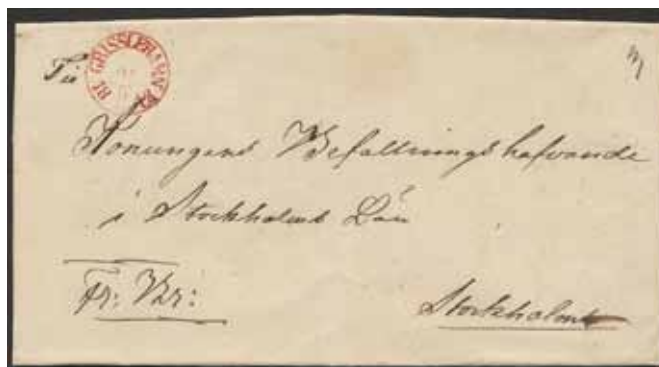 Till
GRISSLEHAMN
Konungens Befallningshafvande
i Stockholms Län
Fr: Br:
Stockholm